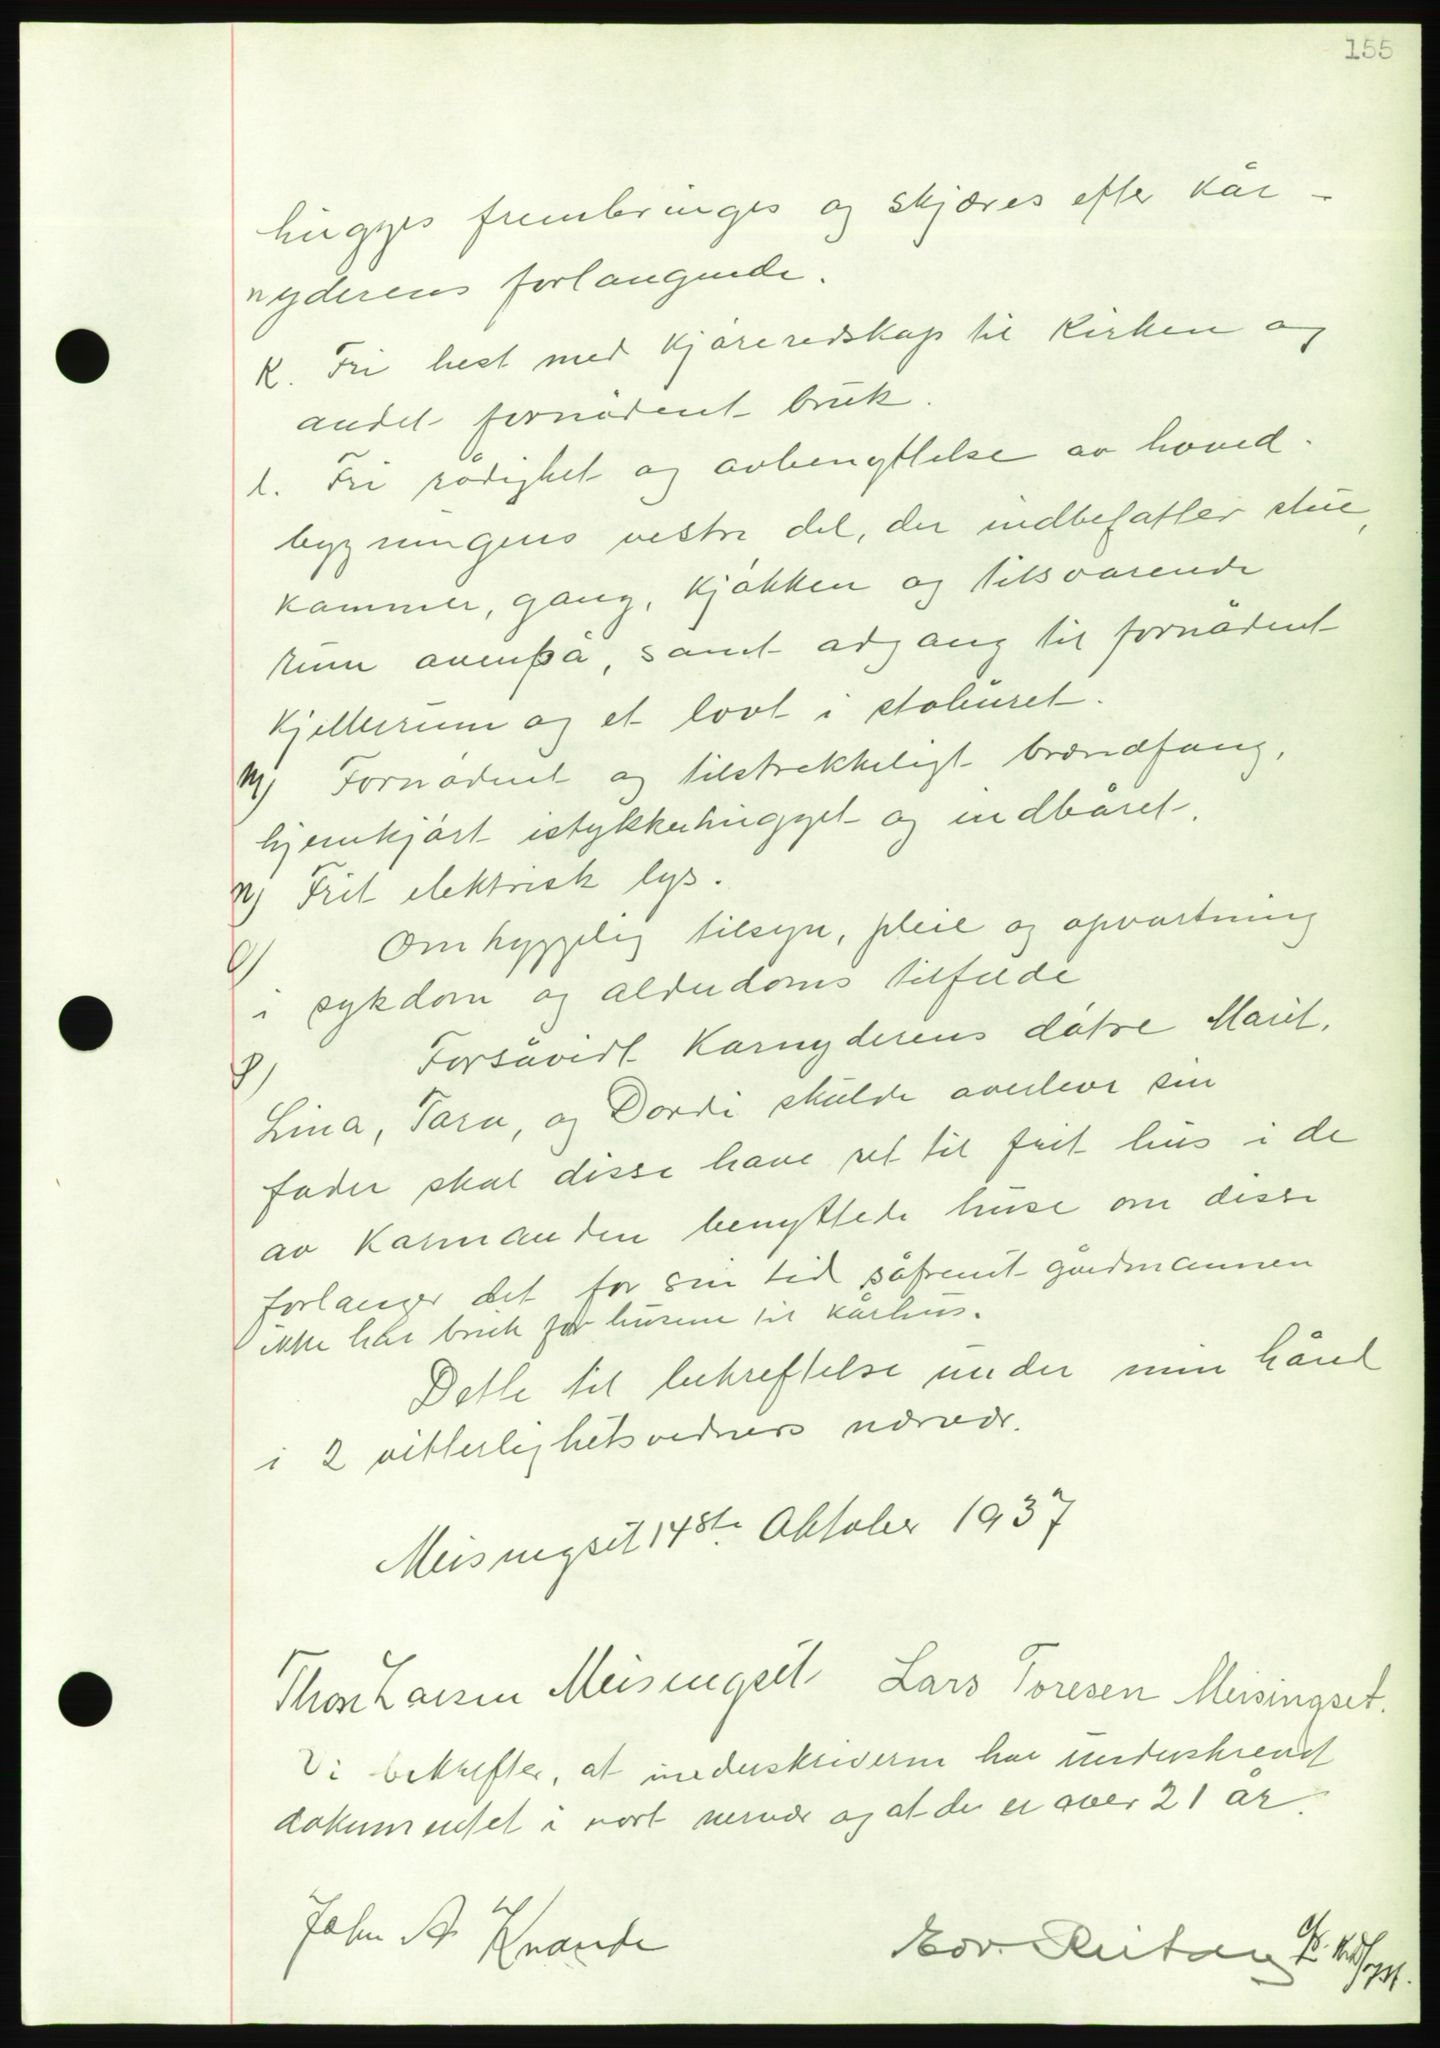 155
hugges frembringes og skjæres efter kår -
nyderens forlangende.
K. Fri hest med kjøreredskap til Kirken og
andet fornødent bruk.
l. Fri rådighet og avbenyttelse av hoved-
bygningens vestre del, der indbefatter stue,
kammer, gang, kjøkken og tilsvarende
rum ovenpå, samt adgang til fornødent
kjellerrum og et lovt i stabûret.
M) Fornødent og tilstrekkeligt brændfang,
hjemkjørt istykkerhugget og indbåret.
N) Frit elektrisk lys.
O) Omhyggelig tilsyn, pleie og opvartning
i sykdom og alderdoms tilfælde
P) Forsåvidt Karnyderens døtre Marit,
Lina, Tara, og Dordi skulde overleve sin
fader skal disse have ret til frit hus i de
av Karmanden benyttede huse om disse
forlanger det for sin tid såfremt gårdmannen
ikke har bruk for husene til kårhus.
Dette til bekreftelse under min hånd
i 2 vitterlighetsvidners nærvær.
Meisingset 14de Oktober 1937
Thore Larsen Meisingset Lars Toresen Meisingset.
Vi bekrefter, at underskriverne har underskrevet
dokumentet i vort nervær og at de er over 21 år.
John A Kvande
Edv. Reitan